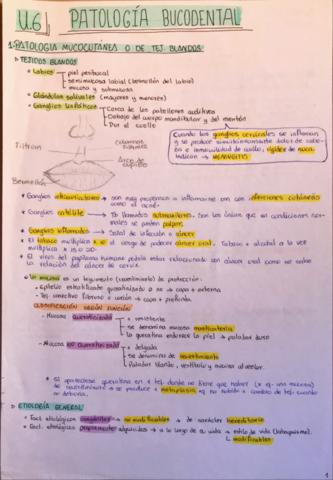 U.6 PATOLOGÍA BUCODENTAL
1. PATOLOGIA MUCOCUTÁNEA O DE TEJ. BLANDOS:
▷ TEJIDOS BLANDOS
• Labios → piel peribucal
→ semimucosa labial (bermellón del labial)
→ mucosa y submucosa
• Glándulas salivales (mayores y menores)
• Ganglios linfáticos → Cerca de los pabellones auditivos
→ Debajo del cuerpo mandibular y del mentón
→ Por el cuello
Cuando los ganglios cervicales se inflaman
y se produce simultáneamente dolor de cabe-
za e inmovilidad de cuello, rigidez de nuca
indican → MENINGITIS
Columnas
Filtrum
Arco de
cupido
Bermellón
• Ganglios → son muy propensos a inflamarse con con afecciones cutáneas
como el acné
• Ganglios satélite → Tb llamados submaxilares. Son los únicos que en condiciones nor-
males se pueden palpar.
• Ganglios inflamados → Señal de infección o cáncer
• El tabaco multiplica x 10 el riesgo de padecer cáncer oral. Tabaco + alcohol a la vez
multiplica x 15 o 20.
• El virus del papiloma humano podría estar relacionado con cáncer oral como no sobre
la relación del cáncer de cérvix.
• La mucosa es un tegumento (revestimiento) de protección:
- Epitelio estratificado queratinizado o no → capa + externa
- Tej. conectivo fibroso o corion → capa + profunda
CLASIFICACIÓN SEGÚN FUNCIÓN
- Mucosa queratinizada → + resistente
→ se denomina mucosa masticatoria
→ la queratina endurece la piel → paladar duro
- Mucosa no queratinizada → + delgada
→ se denomina de revestimiento
→ Paladar blando, vestíbulo y mucosa alveolar.
* Si apareciese queratina en 1 tej. donde no tiene que haber (x ej. una mucosa)
de revestimiento se produce 1 metaplasia xq ha habido 1 cambio de tej. cuando
no debería.
▷ ETIOLOGÍA GENERAL:
• Fact. etiológicos congénitos → no modificables → de carácter hereditario
• Fact. etiológicos propiamente adquiridos → a lo largo de la vida → estilo de vida (tabaquismo).
↳ modificables
1